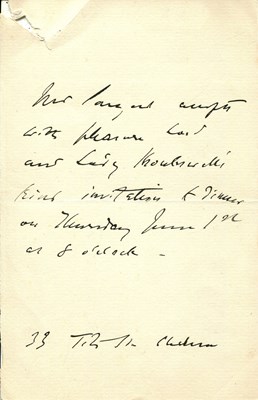 Mr Sargent accepts
with pleasure Lord
and Lady Monkswell's
kind invitation to dinner
on Thursday June 1st
at 8 o'clock –
33 Tite St. Chelsea